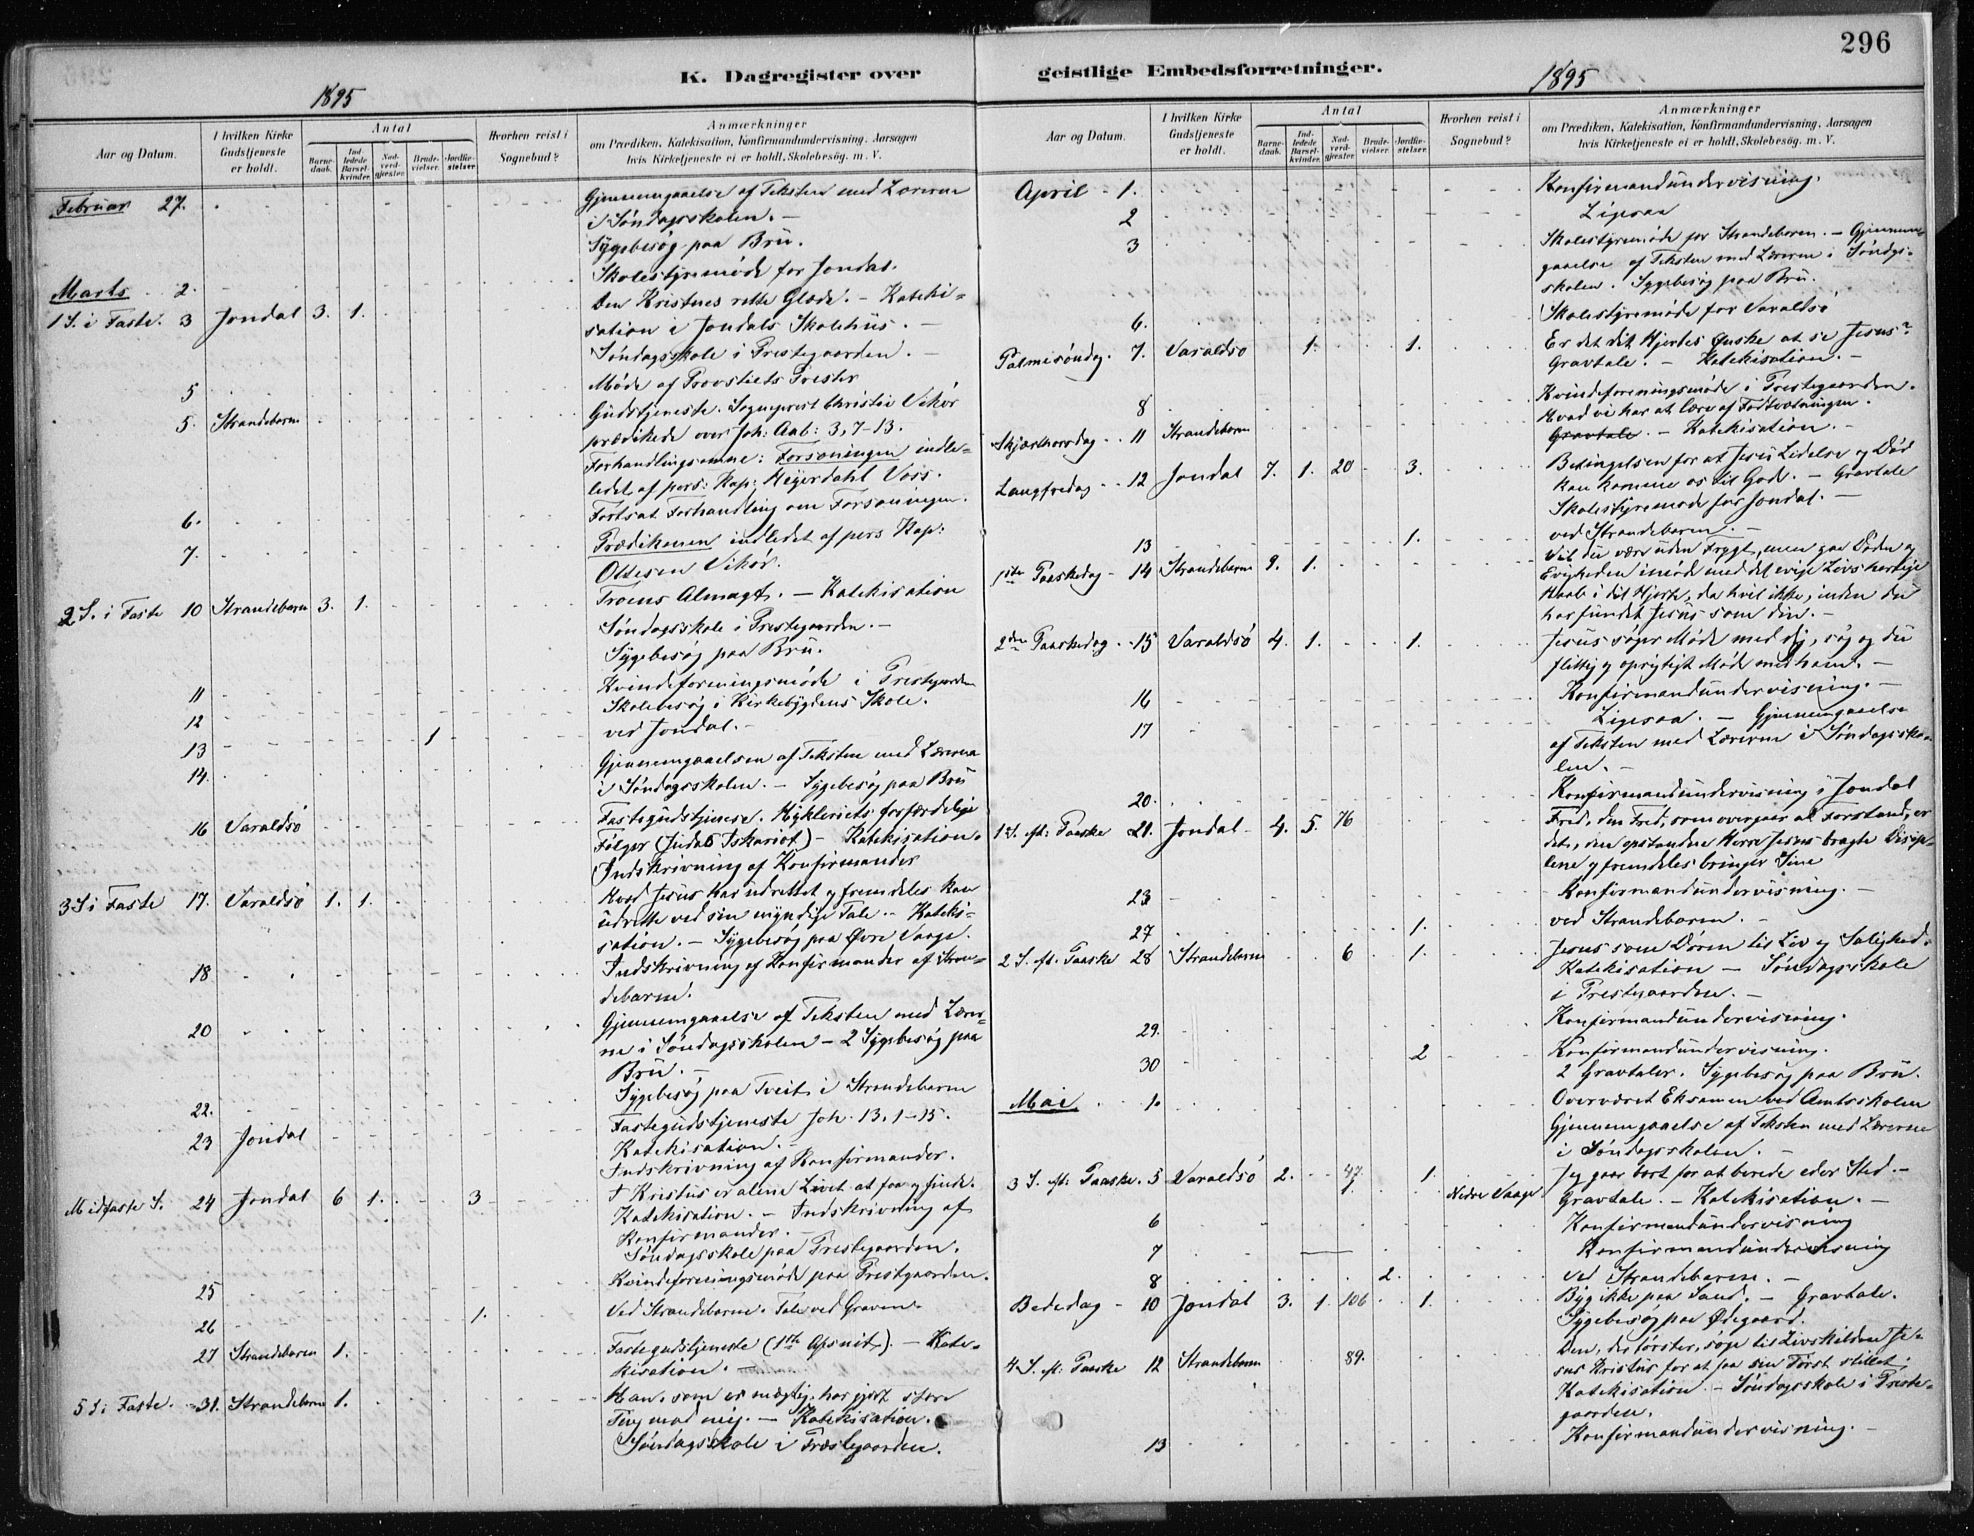 296
K. Dagregister over geistlige Embedsforretninger.
1895
Aar og Datum.
I hvilken Kirke Gudstjeneste er holdt.
Antal
Barnedaab.
Indledede Barselkvinder.
Nadverdgjester.
Brudevielser.
Jordfæstelser.
Hvorhen reist i Sognebud?
Anmærkninger
om Prædiken, Katekisation, Konfirmandundervisning, Aarsagen
hvis Kirketjeneste ei er holdt, Skolebesög. m. V.
Februar 27. Gjennemgaaelse af Teksten med Lærerne
i Søndagsskolen. -
Sygebesøg paa Brü.
Marts 2. Skolestyremøde for Jondal.
1 S. i Faste. 3 Jondal 3. 1. Den Kristnes rette Glæde. - Kateki=
sation i Jondals Skolehüs. -
Søndagsskole i Prestegaarden. -
5 Møde af Provstiets Prester
5. Strandebarm Gudstjeneste. Sogneprest Christie Vikør
prædikede over Joh: Aab: 3, 7-13.
Forhandlingsemne: Forsoningen indle=
ledet af pers: Kap: Heyerdahl Voss.
6. Fortsat Forhandling om Forsoningen.
7. Prædikenen indledet af pers Kap:
Ottesen Vikør.
2 S. i Faste 10 Strandebarm 3. 1. Troens Almagt. - Katekisation
Søndagsskole i Prestegaarden. -
Sygebesøg paa Brü.
11 Kvindeforeningsmøde i Prestegaarden
12 Skolebesøg i Kirkebygdens Skole.
13 1 ved Jondal. -
14. Gjennemgaaelsen af Teksten med Lærerne
i Søndagsskolen. - Sygebesøg paa Brü
16 Varaldsö Fastegudstjenese. Hykleriets forfærdelige
Følger (Judas Iskariot) - Katekisation.
Indskrivning af Konfirmander
3 S i Faste 17. Varaldsö 1. 1. Hvad Jesus har udrettet og fremdeles kan
udrette ved sin myndige Tale. - Kateki=
sation. - Sygebesøg paa Øvre Vaage.
18 Indskrivning af Konfirmander af Stran=
debarm.
20 Gjennemgaaelse af Teksten med Lærer=
ne i Søndagsskolen - 2 Sygebesøg paa
Brü. -
22. Sygebesøg paa Tveit i Strandebarm
23 Jondal Fastegudstjeneste Joh. 13. 1-15.
Katekisation. -
Indskrivning af Konfirmander.
Midfaste S. 24 Jondal 6 1. 3 I Kristus er alene Livet at faa og finde.
Katekisation. - Indskrivning af
Konfirmander. -
Søndagsskole paa Prestegaarden.
25 Kvindeforeningsmøde paa Prestgaarden.
26 1. Ved Strandebarm. Tale ved Graven.
27 Strandebarm 1. Fastegudstjeneste (1ste Afsnit). - Kate=
kisation.
5 S i Faste. 31. Strandebarm 1. Han, som er mægtig, har gjort store
Ting mod mig. - Katekisation.
Søndagsskole i Præstegaarden.
1895
Aar og Datum.
I hvilken Kirke Gudstjeneste er holdt.
Antal
Barnedaab.
Indledede Barselkvinder.
Nadverdgjester.
Brudevielser.
Jordfæstelser.
Hvorhen reist i Sognebud?
Anmærkninger
om Prædiken, Katekisation, Konfirmandundervisning, Aarsagen
hvis Kirketjeneste ei er holdt, Skolebesög. m. V.
April 1. Konfirmandundervisning.
2 Ligesaa
3 Skolestyremøde for Strandebarm. - Gjennem=
gaaelse af Teksten med Lærerne i Søndgs-
skolen. Sygebesøg paa Brü.
6. Skolestyremøde for Varaldsö
Palmesøndag. 7. Varaldsö 1. 1. Er det dit Hjertes Ønske at se Jesus?
Gravtale. - Katekisation. -
8 Kvindeforeningsmøde i Prestegaarden.
Skjærthorsdag 11 Strandebarm Hvad vi har at lære af Fodtvætningen.
Gravtale. - Katekisation. -
Langfredag 12 Jondal 7. 1. 20 3. Betingelsen for at Jesu Lidelse og Død
kan komme os til Gode. - Gravtale
Skolestyremøde for Jondal. -
13 1. ved Strandebarm. -
1ste Paaskedag 14 Strandebarm 9. 1. Vil du være uden Frygt, men gaa Døden og
Evigheden imøde med det evige Livs herlige
Haab i dit Hjerte, da hvil ikke, inden du
har fundet Jesüs som din. -
2den Paaskedag 15 Varaldsö 4. 1. 1. Jesüs søger Møde med dig, søg og du
flittig og oprigtigt Møde med ham. -
16 Konfirmandündervisning. -
17 Ligesaa. - Gjennemgaaelse
af Teksten med Lærerne i Søndagssko=
len. -
20. Konfirmandundervisning i Jondal
1 S. eft: Paaske 21. Jondal 4. 5. 76 Fred, den Fred, som overgaar al Forstand, er
det, den opstandne Herre Jesus bragte Discip=
lene og fremdeles bringer Sine
23 Konfirmandundervisning. -
27 1. ved Strandebarm. -
2 S. eft. Paaske 28 Strandebarm 6 1. Jesus som Døren til Liv og Salighed.
Katekisation - Søndagsskole
i Prestegaarden. -
29. Konfirmandundervisning.
30 2 Konfirmandundervisning.
2 Gravtaler. Sygebesøg paa Brü.
Mai 1. Overværet Eksamen ved Amtsskolen
Gjennemgaaelse af Teksten med Lærerne
i Søndagsskolen. -
3 S. eft. Paaske. 5 Varaldsö 2. 47. 1. Jeg gaar bort for at berede eder Sted. -
1. Nedre Vaage Gravtale. - Katekisation. -
6 Konfirmandundervisning
7 Konfirmandundervisning
8 2. ved Strandebarm. -
Bededag 10 Jondal 3. 1 106 1. Byg ikke paa Sand. - Gravtale.
Sygebesøg paa Ødegaard.
4 S. eft: Paaske 12 Strandebarm 89. Den, der tørster, søge til Livskilden Je=
sus Kristus for at faa sin Tørst stillet.
Katekisation - Søndagsskole i Preste=
gaarden.
13 Konfirmandundervisning. -